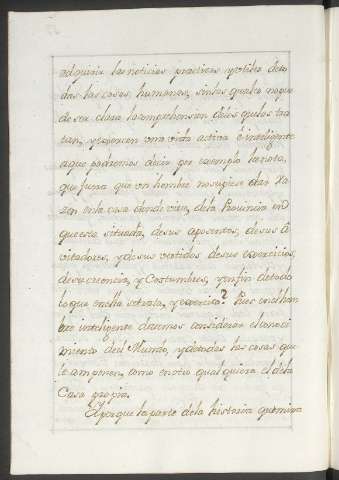 adquirir las noticias practicas, y vtiles de to
das las cosas, humanas, sin las quales no pue
de ser clara la comprehension de los que las tra
tan, y exercen vna vida activa è inteligente
a que podremos decir por exemplo la nota,
que fuera que vn hombre no supiese dar Ra
zon en la casa donde vive, de la Provincia en
que esta situada, de sus aposentos, de sus a
vitadores, y de sus vestidos de sus exercicios,
de su creencia, y Costumbres, y en fin de todo
lo que en ella se trata, y exercita? Pues en el hom
bre inteligente devemos considerar el conoci
miento del Mundo, y de todas las cosas que
le componen, como en otro qualquiera el de la
Casa propia.
Y porque la parte de la historia que mira